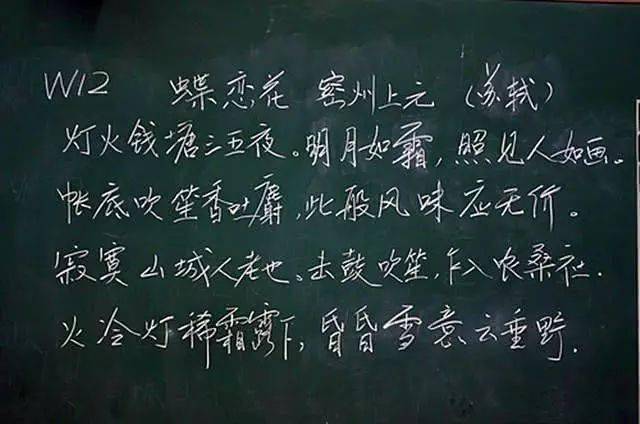 W12 蝶恋花 密州上元 (苏轼)
灯火钱塘三五夜。明月如霜,照见人如画。
帐底吹笙香吐麝,此般风味应无价。
寂寞山城人老也。击鼓吹笙,乍入农桑社.
火冷灯稀霜露下,昏昏雪意云垂野.